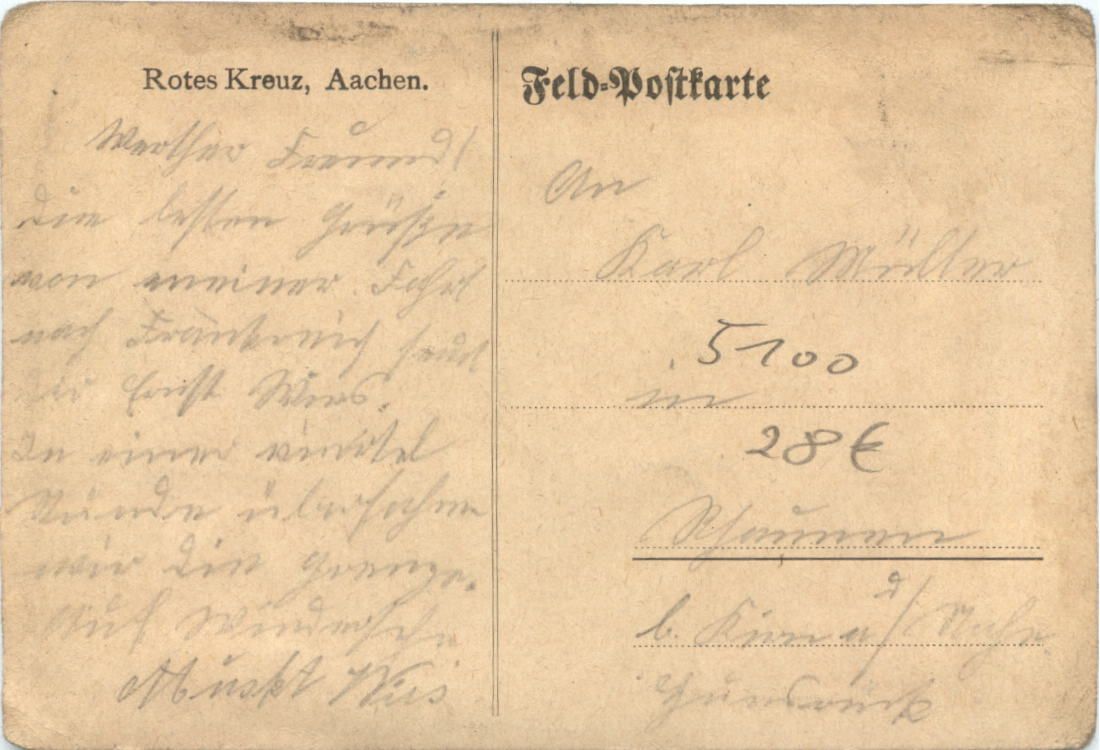 Rotes Kreuz, Aachen.
Werther Freund!
Die besten Grüße
von meiner Fahrt
nach Frankreich send
Dir Ernst Wies.
In einer viertel
Stunde überfahren
wir die Grenze.
Auf Wiedersehn
Muskt Wies
Feld-Postkarte
An
Karl Müller
5100
in
28€
b. Kirn a/d Nahe
Hunsrück